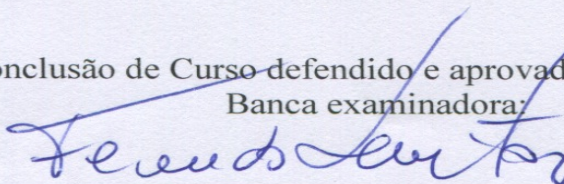 onclusão de Curso defendido e aprovad
Banca examinadora: